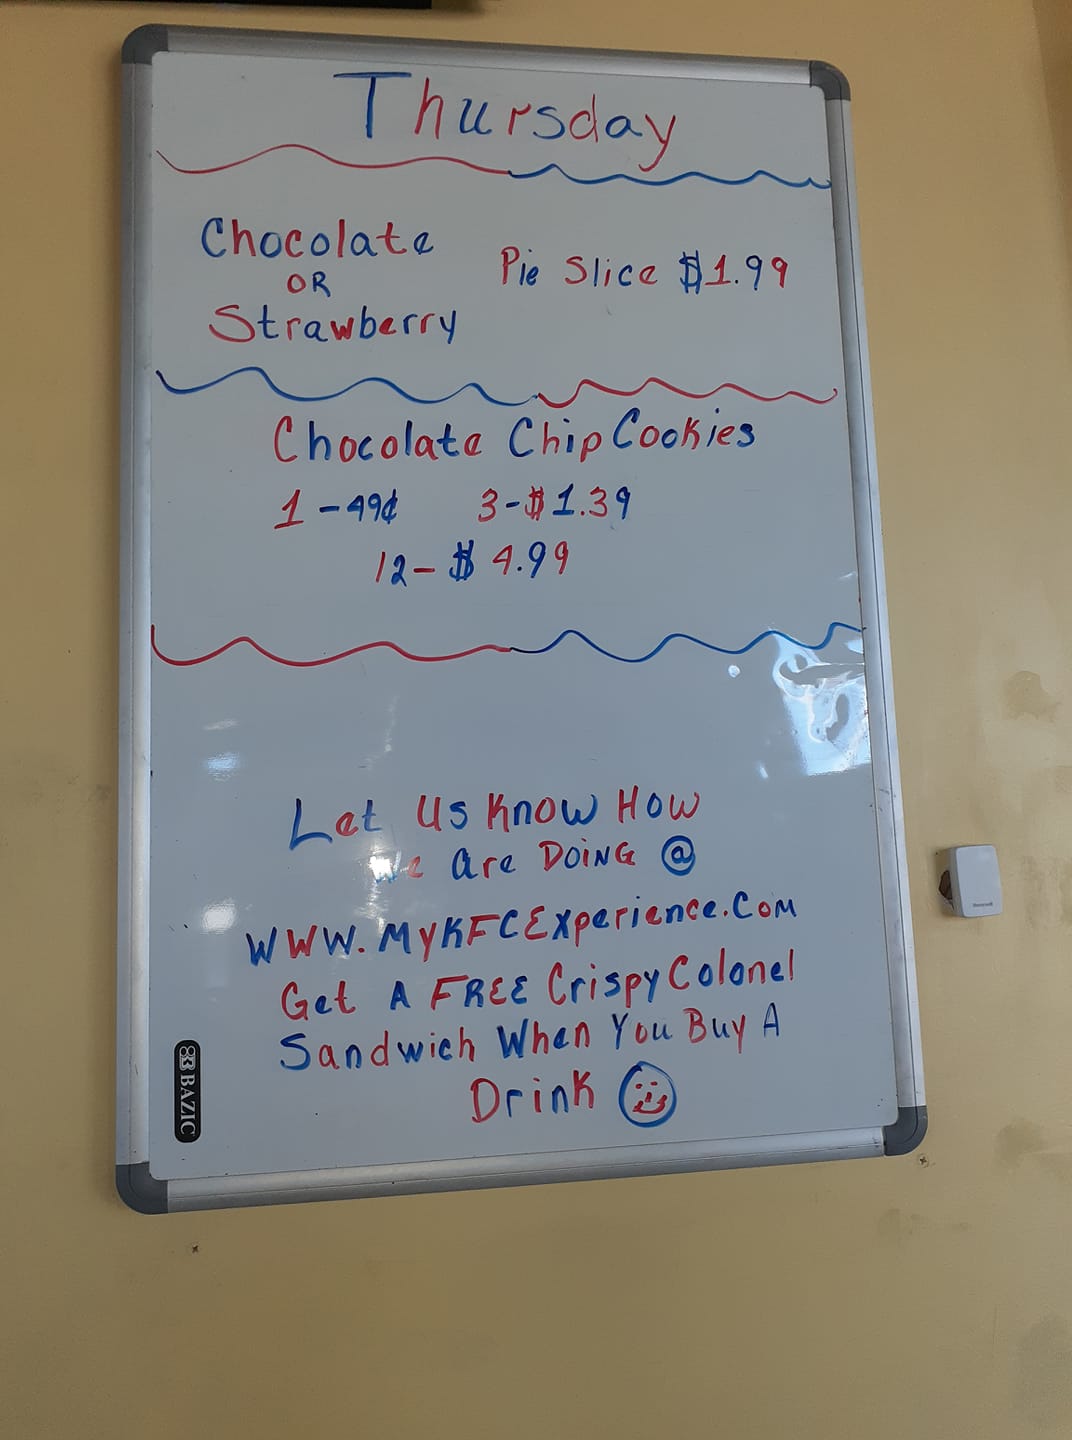 Thursday
Chocolate
OR
Strawberry
Pie Slice $1.99
Chocolate Chip Cookies
1 - 49¢ 3 - $1.39
12 - $4.99
Let Us Know How
We Are DOiNG @
WWW.MyKFCExperience.Com
Get A FREE Crispy Colonel
Sandwich When You Buy A
Drink
BAZIC
Honeywell